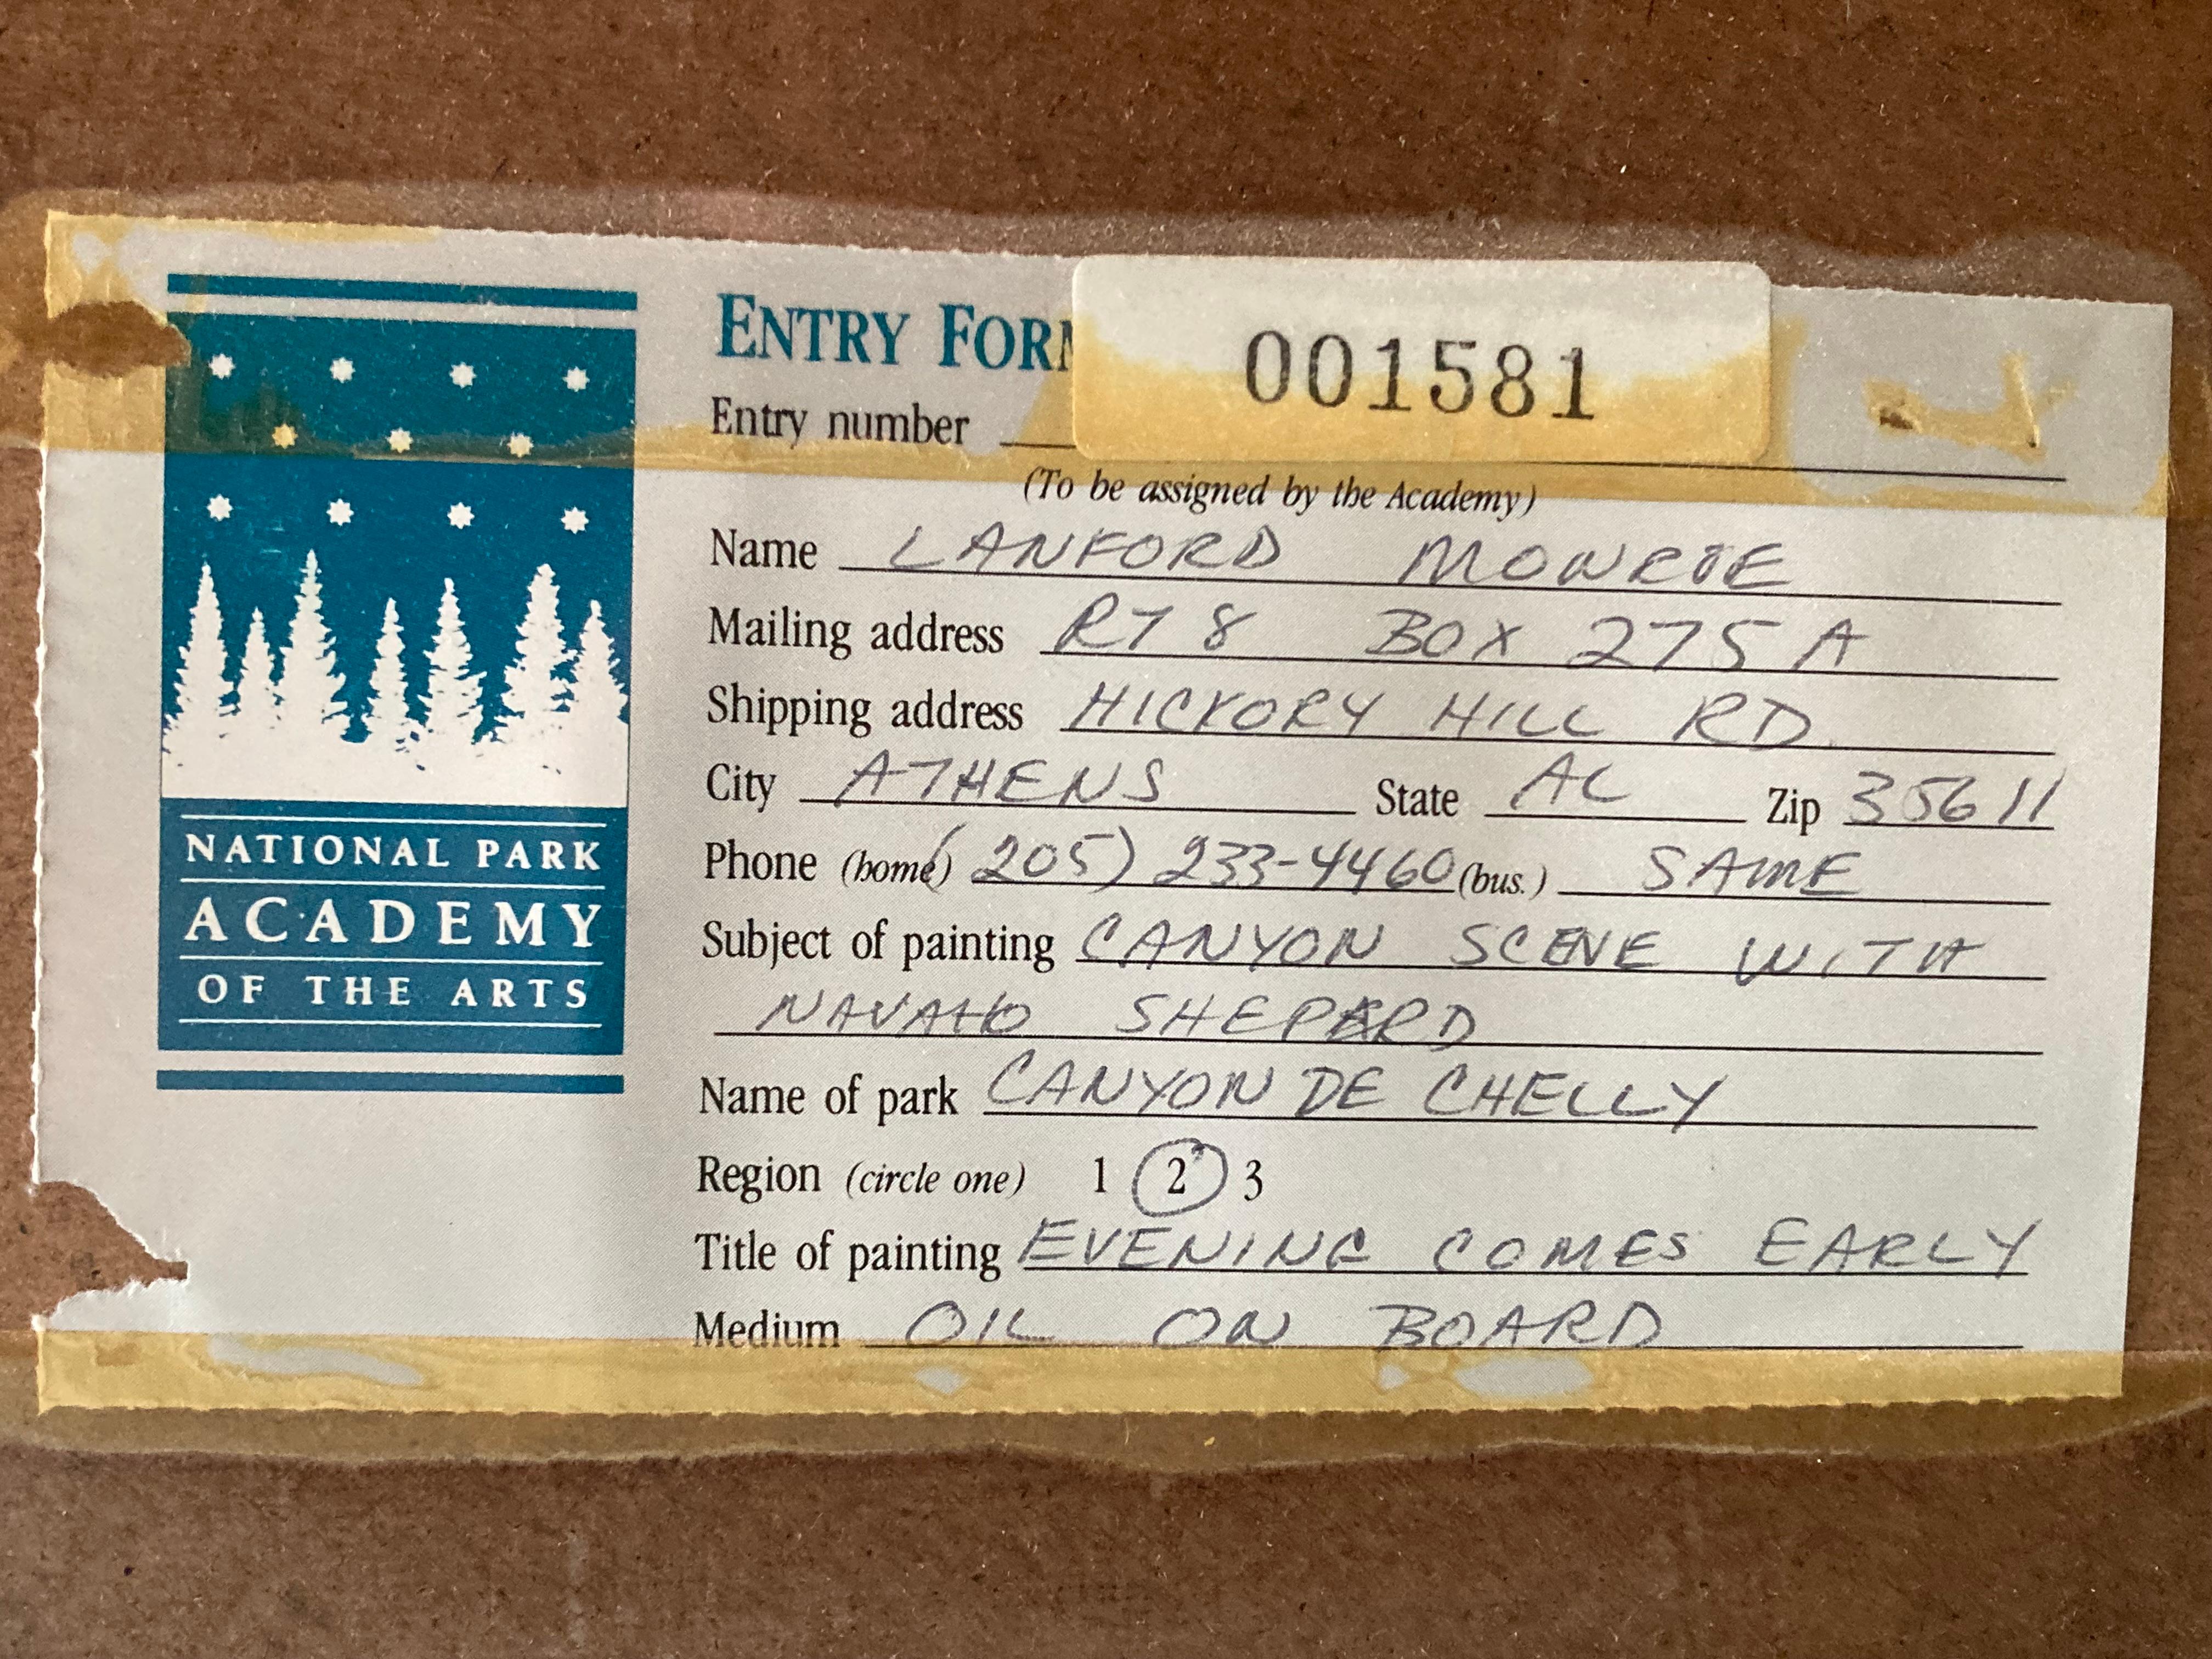 ENTRY FORM
001581
Entry number
(To be assigned by the Academy)
Name LANFORD MONROE
Mailing address RT 8 BOX 275 A
Shipping address HICKORY HILL RD
City ATHENS State AL Zip 35611
Phone (home) (205) 233-4460 (bus.) SAME
Subject of painting CANYON SCENE WITH
NAVAHO SHEPERD
Name of park CANYON DE CHELLY
Region (circle one) 1 2 3
Title of painting EVENING COMES EARLY
Medium OIL ON BOARD
NATIONAL PARK
ACADEMY
OF THE ARTS